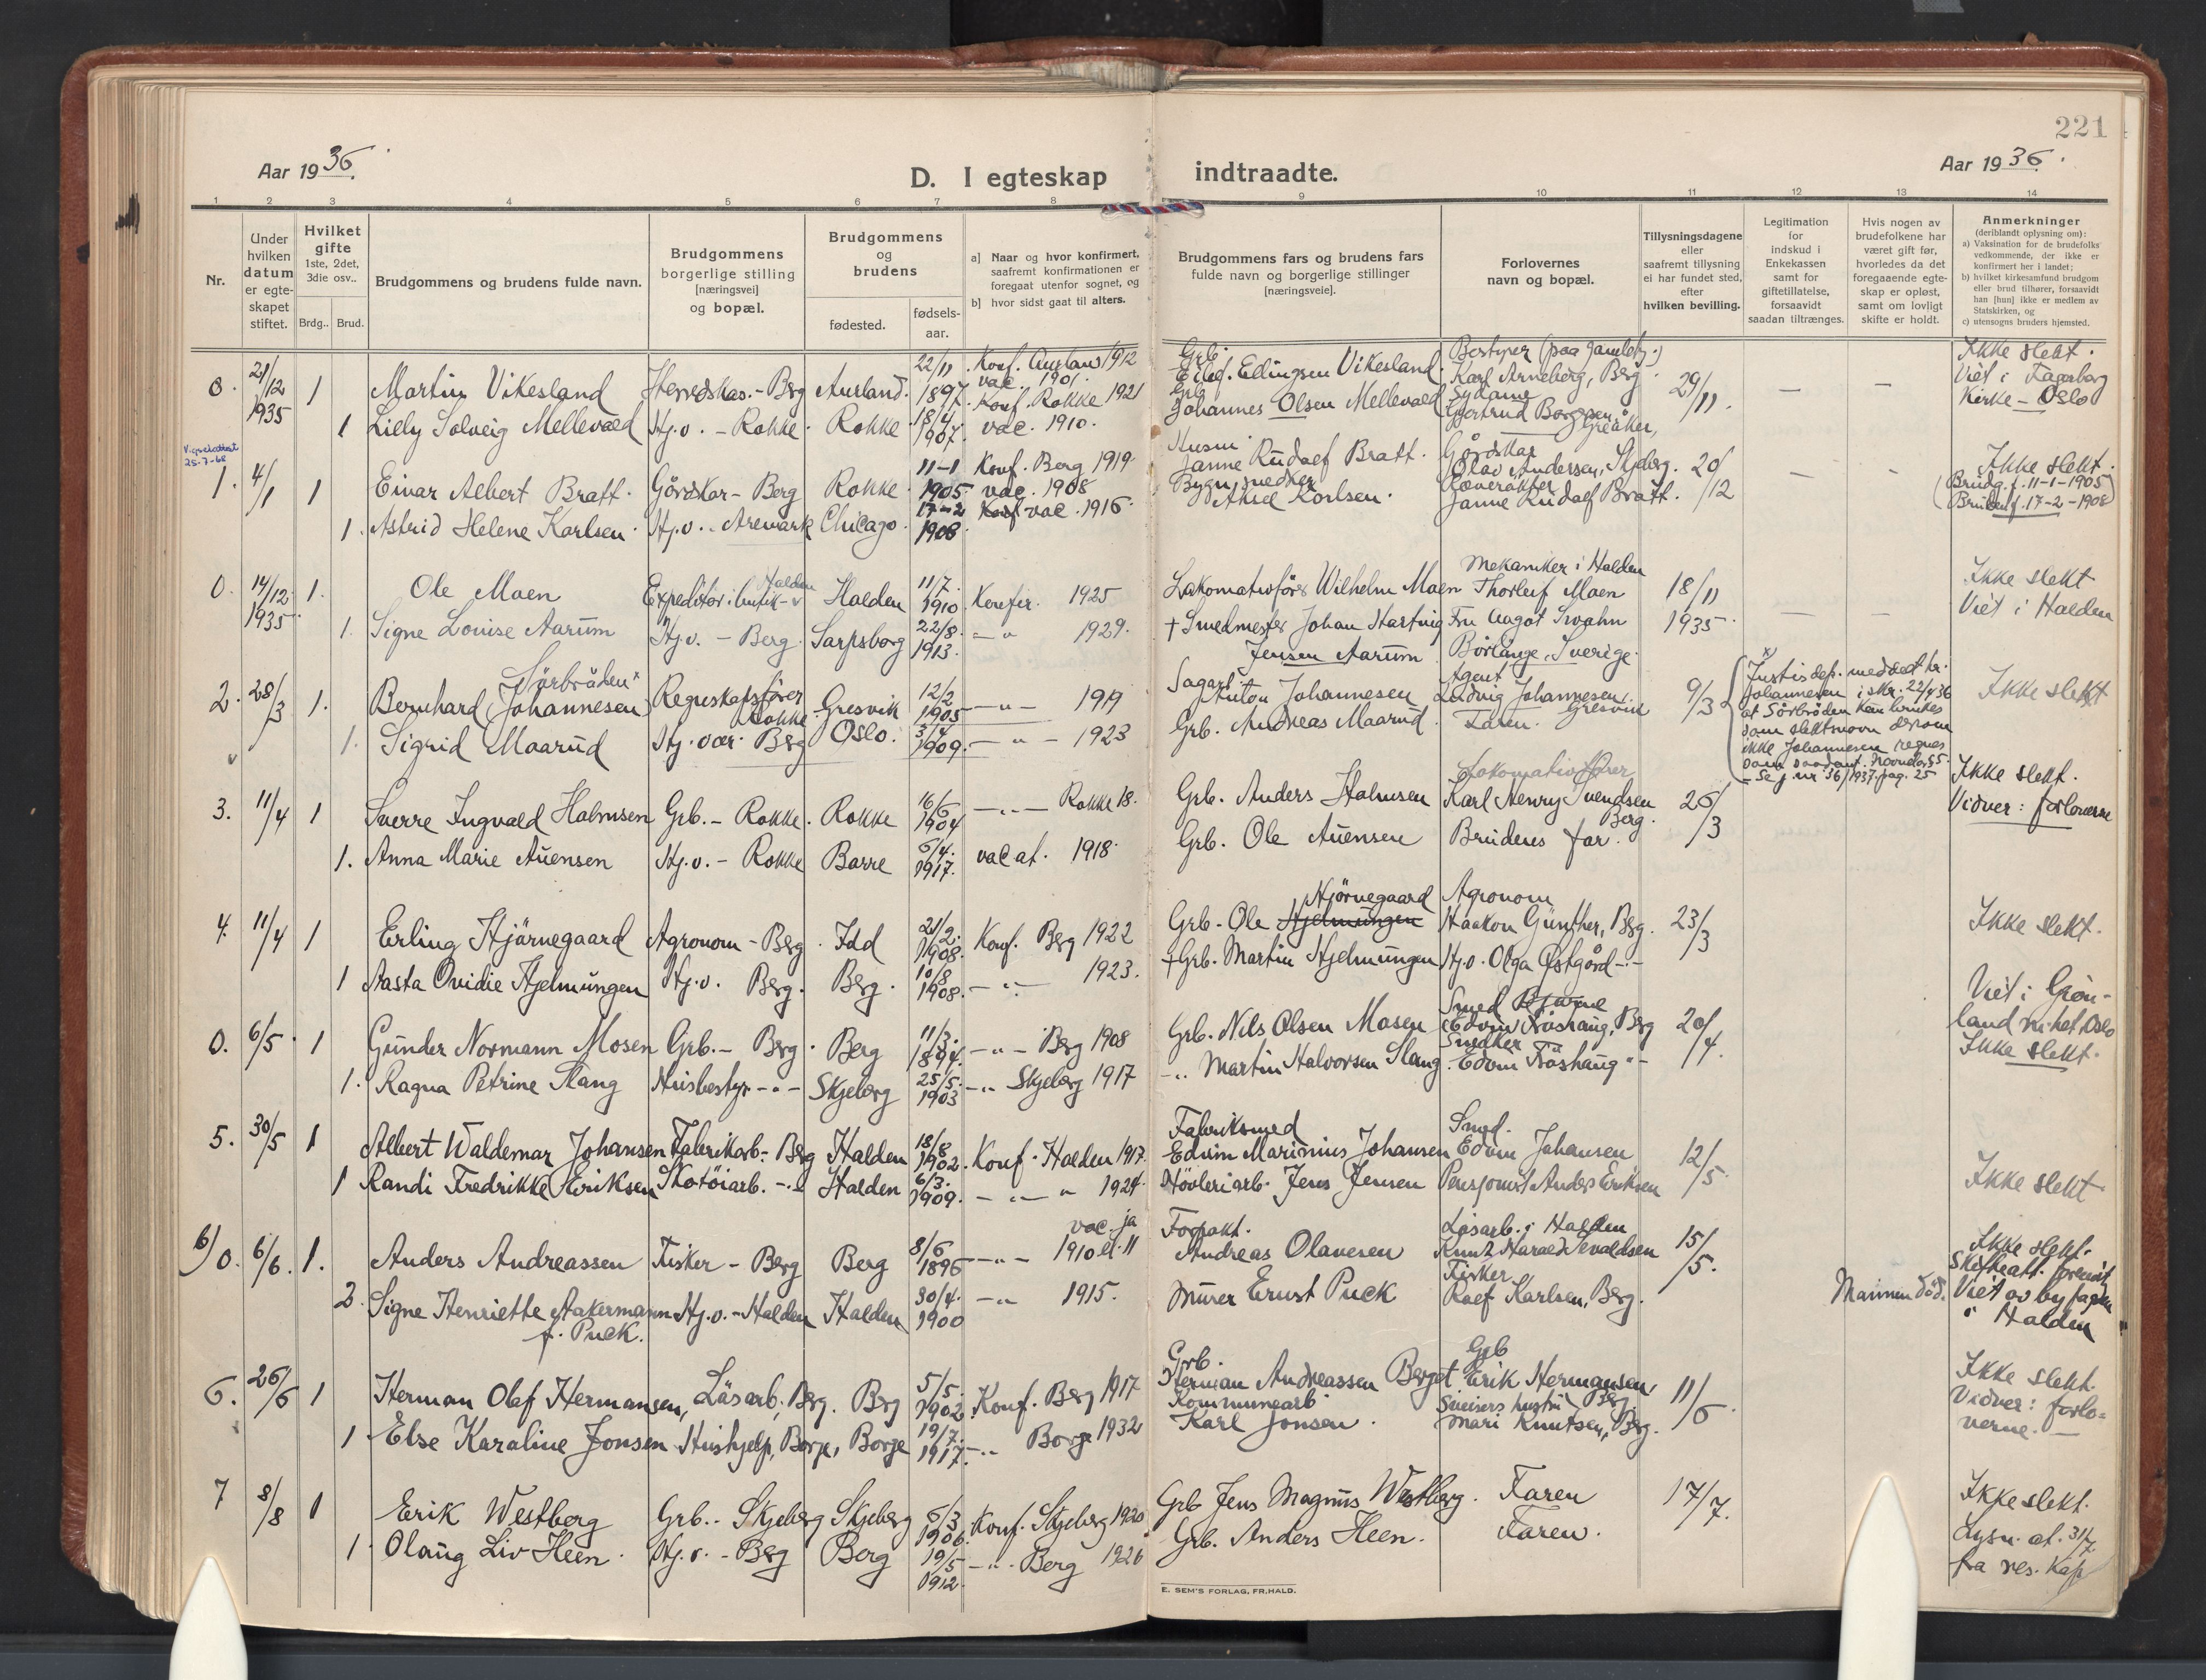 221
Aar 1936.
D. I egteskap indtraadte.
Aar 1936.
1 2 3 4 5 6 7 8 9 10 11 12 13 14
Nr.
Under hvilken datum er egte-skapet stiftet.
Hvilket gifte 1ste, 2det, 3die osv..
Brdg.. Brud.
Brudgommens og brudens fulde navn.
Brudgommens borgerlige stilling [næringsvei] og bopæl.
Brudgommens og brudens
fødested.
fødsels-aar.
a) Naar og hvor konfirmert, saafremt konfirmationen er foregaat utenfor sognet, og
b) hvor sidst gaat til alters.
Brudgommens fars og brudens fars fulde navn og borgerlige stillinger [næringsveie].
Forlovernes navn og bopæl.
Tillysningsdagene eller saafremt tillysning ei har fundet sted, efter hvilken bevilling.
Legitimation for indskud i Enkekassen samt for giftetillatelse, forsaavidt saadan tiltrænges.
Hvis nogen av brudefolkene har været gift før, hvorledes da det foregaaende egte-skap er opløst, samt om lovligt skifte er holdt.
Anmerkninger (deriblandt oplysning om):
a) Vaksination for de brudefolks vedkommende, der ikke er konfirmert her i landet;
b) hvilket kirkesamfund brudgom eller brud tilhører, forsaavidt han [hun] ikke er medlem av Statskirken, og
c) utensogns bruders hjemsted.
0. 21/12 1935 1 Martin Vikesland Herredskas.-Berg Aurland. 22/11 1897. Konf. Aurland 1912 vac. 1901. Grb. Eiler. Ellingsen Vikesland. Bestyrer (paa gamleh.) Karl Arneberg, Berg. 29/11. — — Ikke slekt. Viet i Fagerborg Kirke - Oslo
1 Lilly Solveig Mellevold Hj.v. - Rokke. Rokke 18/4 1907. Konf. Rokke 1921 vac. 1910. Grb Johannes Olsen Mellevold Sydame Gjertrud Borgen, Greåker,
Vigselattest 25-7-68
1. 4/1 1 Einar Albert Bratt. Gårdskar - Berg Rokke 11-1 1905. Konf. Berg 1919. vac. 1908 Husm. Janne Rudolf Bratt. Gårdskar Olav Andersen, Skjeberg. 20/12 — - Ikke slekt. (Brudg. f. 11-1-1905)
1. Astrid Helene Karlsen. Hj.v. - Aremark Chicago. 17-2 1908 Konf vac. 1916. Bygn.snedker Axel Karlsen. Ræverøkter Janne Rudolf Bratt. Bruden f. 17-2-1908
0. 14/12. 1935. 1. Ole Moen Expeditør i butik - Halden Halden 11/7. 1910 Konfir. 1925 Lokomotivförer Wilhelm Moen Mekaniker i Halden Thorleif Moen 18/11 1935. — — Ikke slekt Viet i Halden
1. Signe Louise Aarum Hj.v. - Berg. Sarpsborg 22/8. 1913. - " 1929. + Smedmester Johan Hartvig Jensen Aarum Fru Aagot Svahn Borlänge, Sverige.
2. 28/3 1. Bernhard (Johannesen) Sörbröden x Regnskapsfører Rokke Gresvik 12/2 1905 — " — 1919 Sagarb. Anton Johannesen Agent Ludvig Johannesen, Gresvik 9/3 Ikke slekt
x) Justisdep. meddelt hr. Johannesen i skr. 22/4 36 at Sörbröden kan brukes som slektsnavn dersom ikke Johannesen regnes som saadant. - Se j. nr 36/1937 pag. 25
1. Sigrid Maarud Hj.vær. Berg Oslo. 3/4 1909. — " — 1923 Grb. Andreas Maarud. Faren.
3. 11/4 1 Sverre Ingvald Halvorsen Grb. - Rokke. Rokke 16/6 1904 — " — Rokke 18. Grb. Anders Halvorsen Lokomotivfører Karl Henry Svendsen Berg. 26/3 Ikke slekt. Vidner: forloverne
1. Anna Marie Auensen Hj.v. - Rokke Borre 6/4. 1917. vac at. 1918. Grb. Ole Auensen Brudens far.
4. 11/4 1 Erling Hjørnegaard Agronom - Berg. Idd 21/2. 1908. Konf. Berg 1922 Grb. Ole Hjelmungen Hjørnegaard Agronom Haakon Günther, Berg. 23/3 Ikke slekt.
1 Aasta Ovidie Hjelmungen Hj.v. Berg. Berg. 10/8 1908. - " - 1923. + Grb. Martin Hjelmungen Hj.v. Olga Østgård - " -
0. 6/5. 1 Gunder Normann Mosen Grb. - Berg. Berg 11/3. 1894. - " - Berg 1908 Grb. Nils Olsen Mosen Smed Bjarne Edvin Fröshaug, Berg 20/4. Viet i Grøn-land m.het, Oslo Ikke slekt.
1. Ragna Petrine Slang Husbestyr - " - Skjeberg 25/5. 1903 - " Skjeberg 1917 - " Martin Halvorsen Slang. Snedker Edvin Fröshaug " -
5. 30/5 1 Albert Waldemar Johansen Fabrikarb.- Berg Halden 18/8 1902. Konf. Halden 1917. Fabriksmed Edvin Marinius Johansen Smed. Edvin Johansen 12/5. Ikke slekt
1 Randi Fredrikke Eriksen Skotöiarb. - " - Halden 6/3. 1909. - " - " 1924. Hövleriarb. Jens Jensen Pensjonist Anders Eriksen
6/0. 6/6. 1. Anders Andreassen Fisker - Berg Berg 8/6 1896 - " - vac. ja 1910 el. 11 Forpakt. Andreas Olavesen Läsarb. i Halden Knut Harald Nevaldsen 15/5. Ikke slekt. Skifteatt. forevist Viet av byfogden i Halden
2. Signe Henriette Aakermann f. Puck. Hj.v. - Halden Halden 30/4. 1900 - " 1915. Murer Ernst Puck Fisker Rolf Karlsen, Berg. Mannen död.
6. 26/6 1 Herman Olaf Hermansen, Läsarb., Berg. Berg 5/5. 1902. Konf. Berg 1917 Grb. Herman Andreassen Berget Grb Erik Hermansen, Berg 11/6. Ikke slekt. Vidner: forlo=verne. —
1 Else Karoline Jonsen Hushjelp, Borge, Borge 19/7. 1917. - " Borge 1932 Kommunearb Karl Jonsen. Sveisers hustru Mari Knutsen, Berg.
7 8/8 1 Erik Westberg Grb. - Skjeberg Skjeberg 6/3 1906. Konf. Skjeberg 1920 Grb Jens Magnus Westberg. Faren 17/7. Ikke slekt. Lysn. at. 31/7. fra res. kap
1. Olaug Liv Heen. Hj.v. - Berg Berg 19/5 1912. - " - Berg 1926 Grb. Anders Heen. Faren.
E. SEM'S FORLAG, FR.HALD.